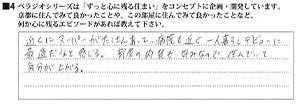 ■4 ベラジオシリーズは「ずっと心に残る住まい」をコンセプトに企画・開発しています。
京都に住んでみて良かったことや、この部屋に住んでみて良かったことなど、
何か心に残るエピソードがあれば教えて下さい。
近くにスーパーがたくさんあって、病院も近く一人暮らしデビューに
最適だなと感じる。部屋の内装も好みなので、住んでいて
気分が上がる。